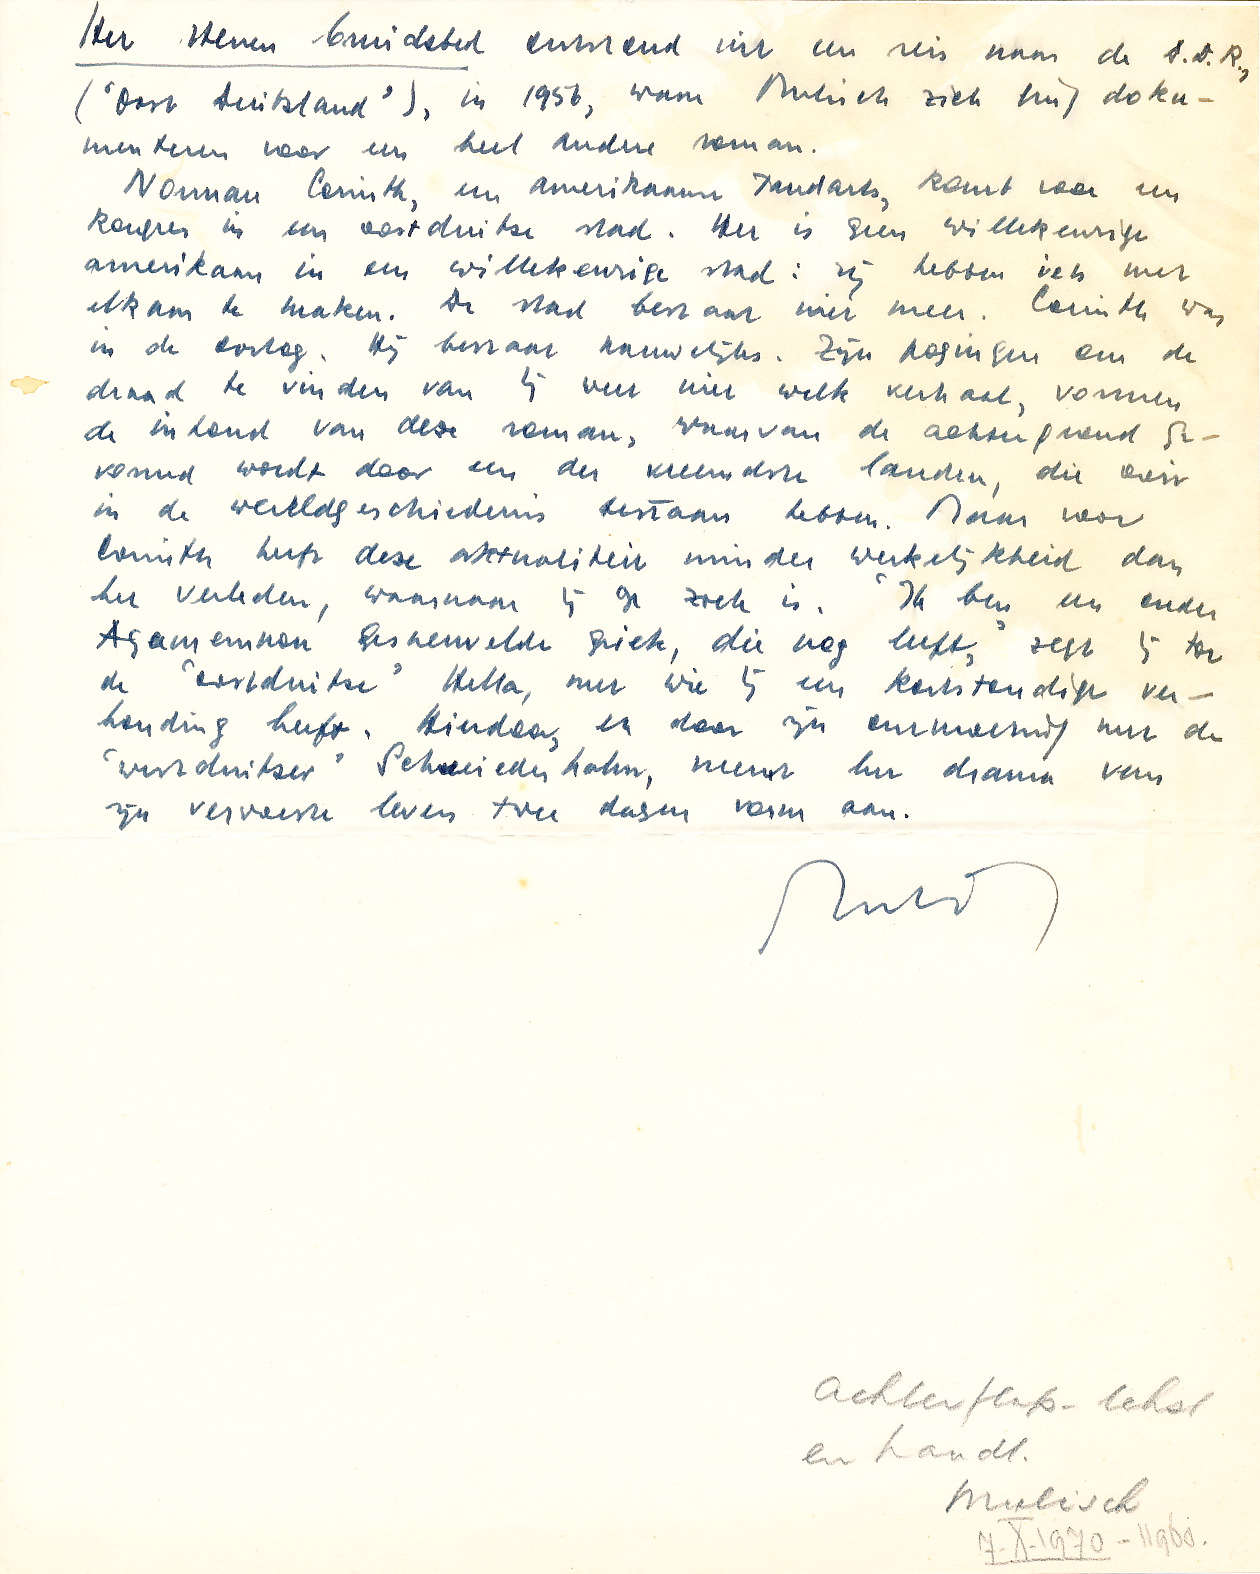 Het stenen bruidsbed ontstond uit een reis naar de D.D.R.,
("Oost Duitsland"), in 1956, waar Mulisch zich hief doku-
menteren voor een heel andere roman.
Norman Corinth, een amerikaanse tandarts, komt voor een
kongres in een oostduitse stad. Het is geen willekeurige
amerikaan in een willekeurige stad: zij hebben iets met
elkaar te maken. De stad bestaat niet meer. Corinth was
in de oorlog. Hij bestaat nauwelijks. Zijn pogingen om de
draad te vinden van hij weet niet welk verhaal, vormen
de inhoud van deze roman, waarvan de achtergrond ge-
vormd wordt door een der vreemdste landen, die ooit
in de wereldgeschiedenis bestaan hebben. Maar voor
Corinth heeft deze aktualiteit minder werkelijkheid dan
het verleden, waarnaar hij op zoek is. "Ik ben een onder
Agamemnon gesneuvelde griek, die nog leeft," zegt hij tot
de "oostduitse" Hella, met wie hij een kortstondige ver-
houding heeft. Hierdoor, en door zijn ontmoeting met de
"westduitser" Schneiederhahn, neemt het drama van
zijn verwoeste leven twee dagen vorm aan.
achterflap-tekst
en handt.
Mulisch
7-X-1970 - 11960.